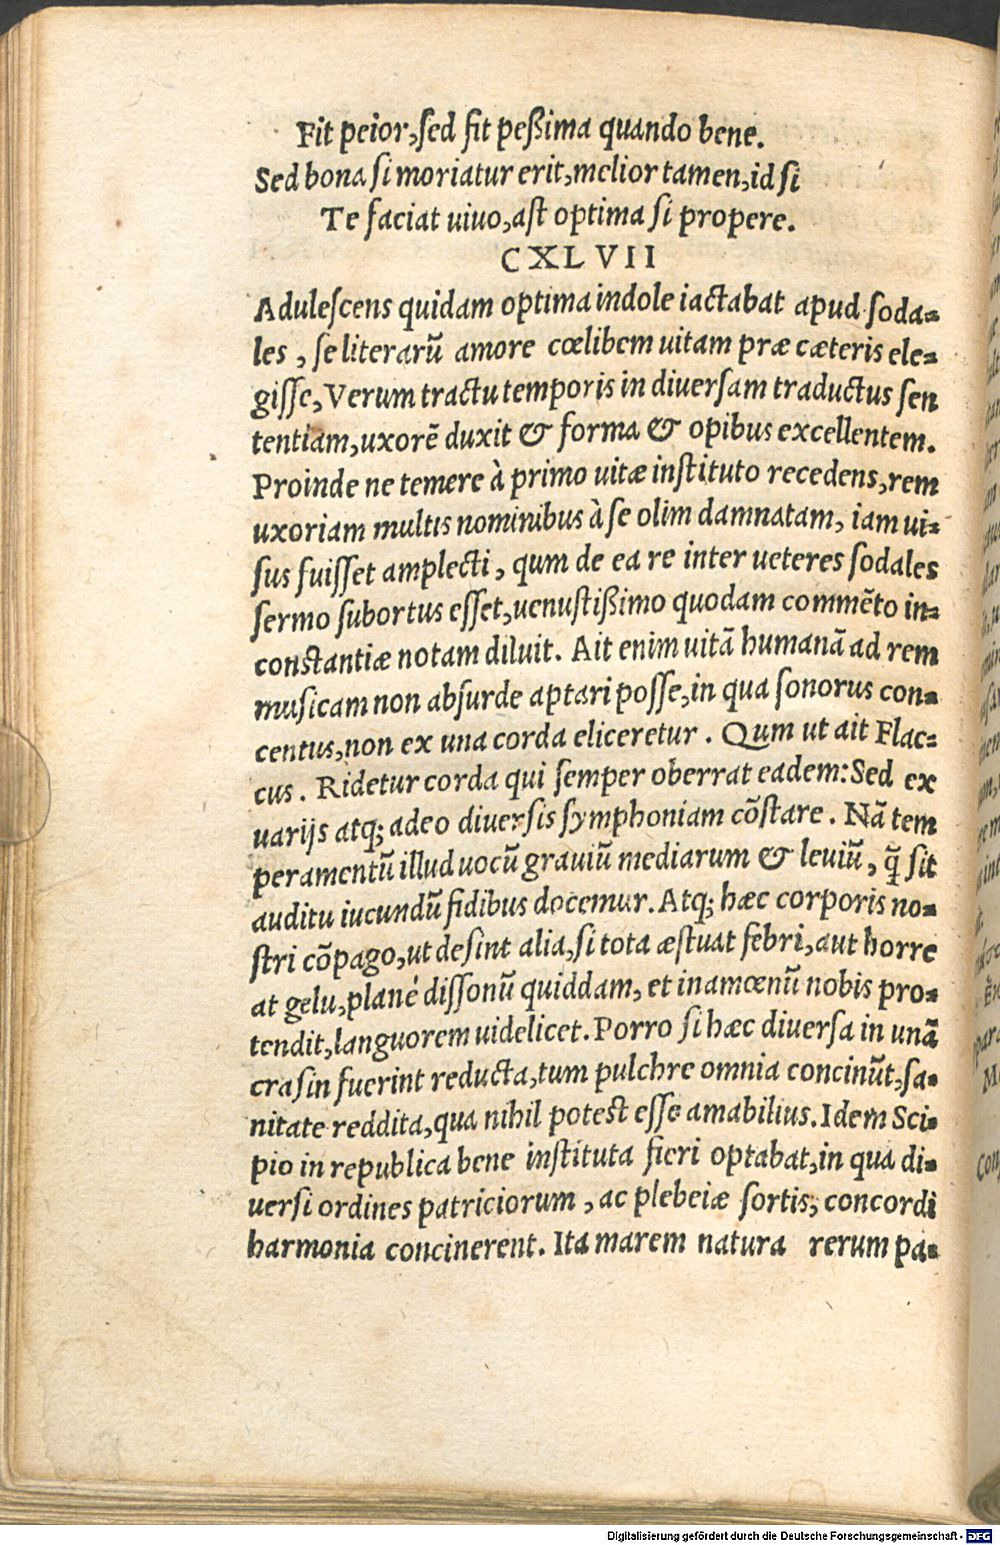 Fit peior, sed fit peßima quando bene.
Sed bona si moriatur erit, melior tamen, id si
Te faciat uiuo, ast optima si propere.
CXLVII
Adulescens quidam optima indole iactabat apud soda-
les, se literarū amore cœlibem uitam præ cæteris ele-
gisse, Verum tractu temporis in diuersam traductus sen
tentiam, uxorē duxit & forma & opibus excellentem.
Proinde ne temere à primo uitæ instituto recedens, rem
uxoriam multis nominibus à se olim damnatam, iam ui-
sus fuisset amplecti, qum de ea re inter ueteres sodales
sermo subortus esset, uenustißimo quodam commēto in-
constantiæ notam diluit. Ait enim uitā humanā ad rem
musicam non absurde aptari posse, in qua sonorus con-
centus, non ex una corda eliceretur. Qum ut ait Flac-
cus. Ridetur corda qui semper oberrat eadem: Sed ex
uarijs atq; adeo diuersis symphoniam cōstare. Nā tem
peramentū illud uocū grauiū mediarum & leuiū, q̄ sit
auditu iucundū fidibus docemur. Atq; hæc corporis no-
stri cōpago, ut desint alia, si tota æstuat febri, aut horre
at gelu, plané dissonū quiddam, et inamœnū nobis pro-
tendit, languorem uidelicet. Porro si hæc diuersa in unā
crasin fuerint reducta, tum pulchre omnia concinūt, sa-
nitate reddita, qua nihil potest esse amabilius. Idem Sci-
pio in republica bene instituta fieri optabat, in qua di-
uersi ordines patriciorum, ac plebeiæ sortis, concordi
harmonia concinerent. Ita marem natura rerum pa-
Digitalisierung gefördert durch die Deutsche Forschungsgemeinschaft - DFG